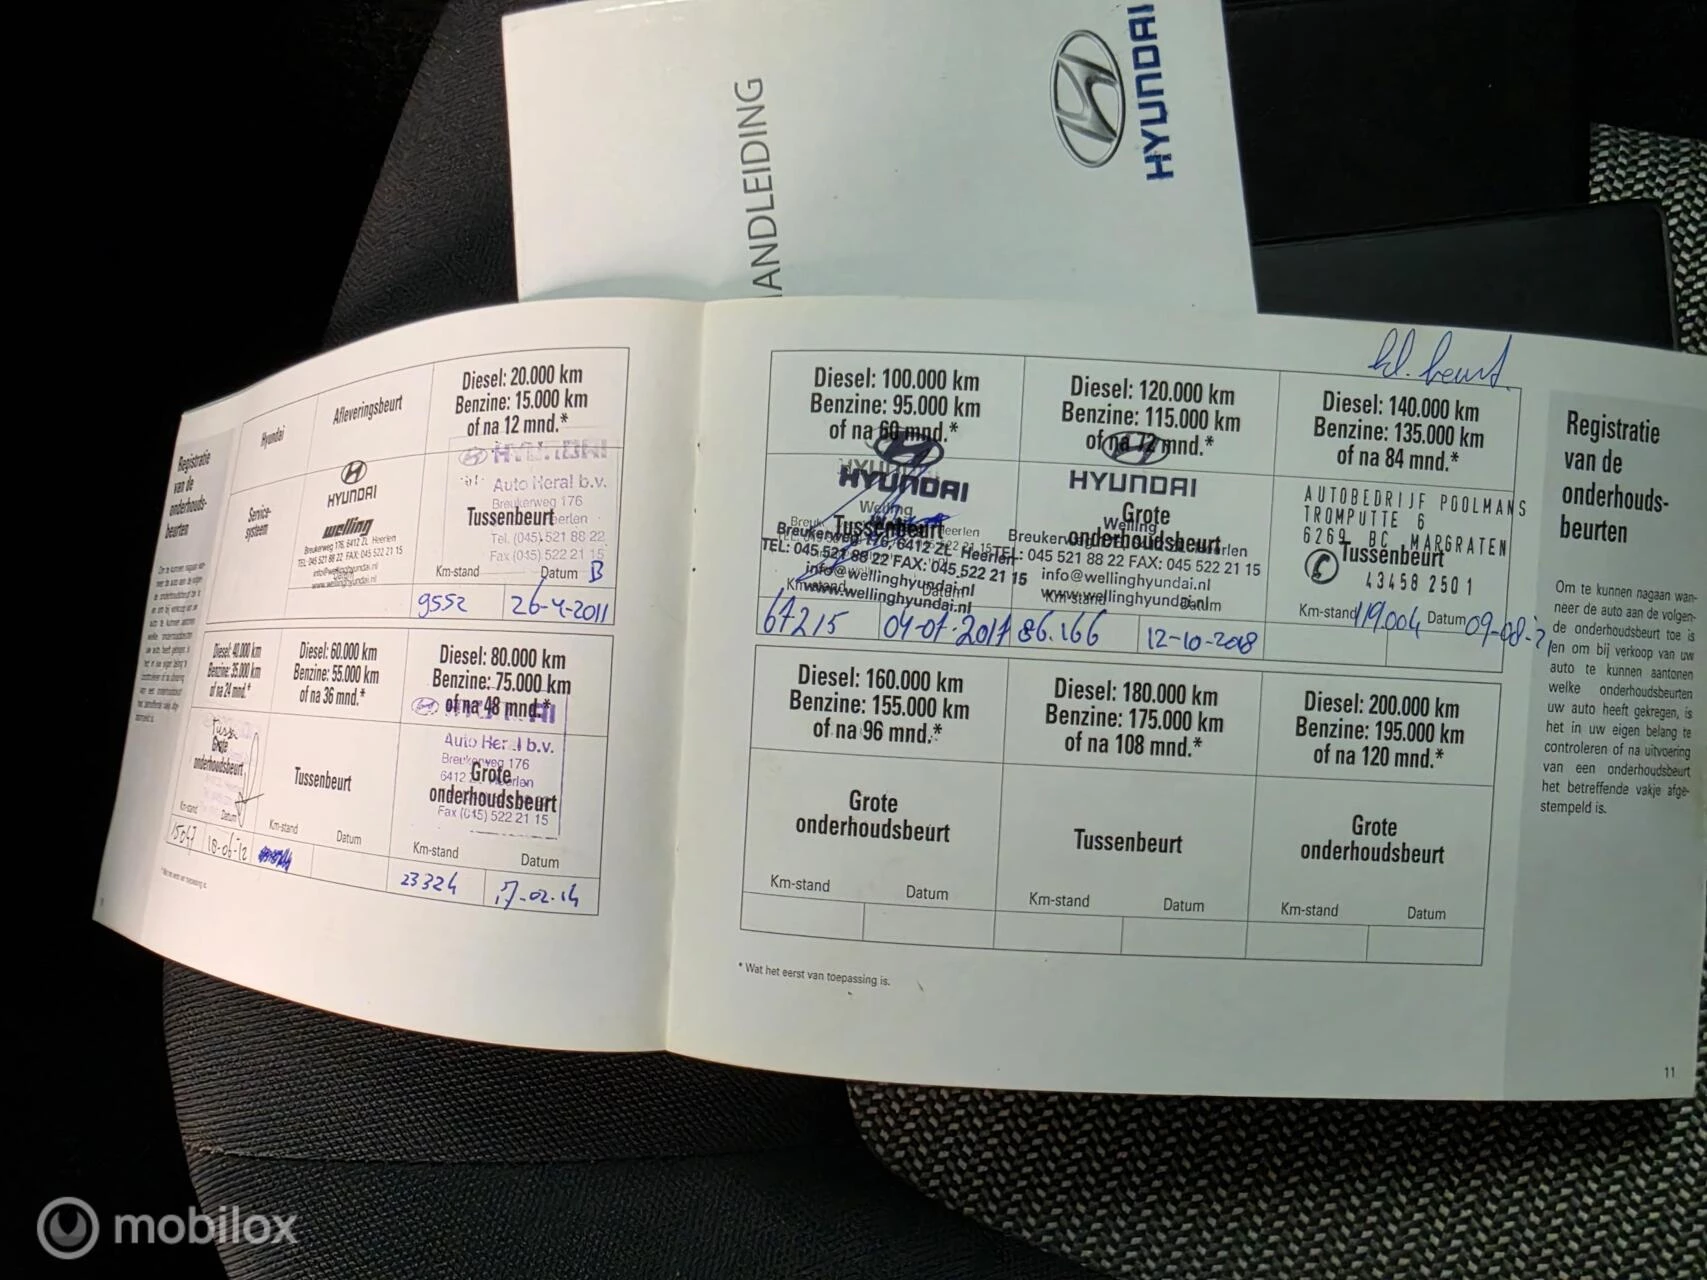 HANDLEIDING
HYUNDAI
Registratie
van de
onderhouds-
beurten
Hyundai
Afleveringsbeurt
Diesel: 20.000 km
Benzine: 15.000 km
of na 12 mnd.*
Service-
systeem
HYUNDAI
welling
Breukerweg 176, 6412 ZL Heerlen
TEL: 045 521 88 22 FAX: 045 522 21 15
info@wellinghyundai.nl
www.wellinghyundai.nl
HYUNDAI
Auto Heral b.v.
Breukerweg 176
Tussenbeurt
Heerlen
Tel. (045) 521 88 22
Fax (045) 522 21 15
Km-stand Datum B
9552 26-4-2011
Diesel: 40.000 km
Benzine: 35.000 km
of na 24 mnd.*
Diesel: 60.000 km
Benzine: 55.000 km
of na 36 mnd.*
Diesel: 80.000 km
Benzine: 75.000 km
of na 48 mnd.*
Grote
onderhoudsbeurt
Km-stand Datum
18-06-12
Tussenbeurt
Km-stand Datum
Auto Heral b.v.
Breukerweg 176
6412 Heerlen
Grote
onderhoudsbeurt
Fax (045) 522 21 15
Km-stand Datum
23324 17-02-14
* Wat het eerst van toepassing is.
kl. beurt.
Diesel: 100.000 km
Benzine: 95.000 km
of na 60 mnd.*
Diesel: 120.000 km
Benzine: 115.000 km
of na 72 mnd.*
Diesel: 140.000 km
Benzine: 135.000 km
of na 84 mnd.*
HYUNDAI
Welling
Tussenbeurt
Breukerweg 176, 6412 ZL Heerlen
TEL: 045 521 88 22 FAX: 045 522 21 15
info@wellinghyundai.nl
www.wellinghyundai.nl
Km-stand Datum
67215 04-07-2017
HYUNDAI
Grote
Welling
onderhoudsbeurt
Breukerweg Heerlen
TEL: 045 521 88 22 FAX: 045 522 21 15
info@wellinghyundai.nl
www.wellinghyundai.nl
Km-stand Datum
86.166 12-10-2018
AUTOBEDRIJF POOLMANS
TROMPUTTE 6
6269 BC MARGRATEN
Tussenbeurt
43458 2501
Km-stand 119.004 Datum 09-08-21
Diesel: 160.000 km
Benzine: 155.000 km
of na 96 mnd.*
Diesel: 180.000 km
Benzine: 175.000 km
of na 108 mnd.*
Diesel: 200.000 km
Benzine: 195.000 km
of na 120 mnd.*
Grote
onderhoudsbeurt
Km-stand Datum
Tussenbeurt
Km-stand Datum
Grote
onderhoudsbeurt
Km-stand Datum
* Wat het eerst van toepassing is.
Registratie
van de
onderhouds-
beurten
Om te kunnen nagaan wan-
neer de auto aan de volgen-
de onderhoudsbeurt toe is
en om bij verkoop van uw
auto te kunnen aantonen
welke onderhoudsbeurten
uw auto heeft gekregen, is
het in uw eigen belang te
controleren of na uitvoering
van een onderhoudsbeurt
het betreffende vakje afge-
stempeld is.
11
mobilox